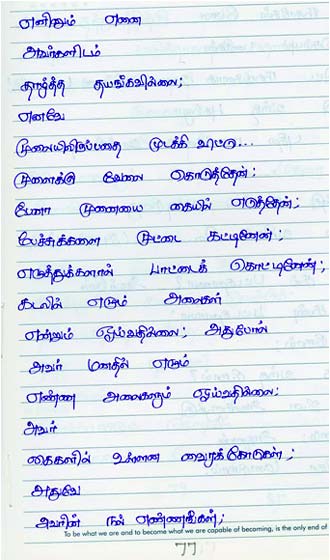 எனினும் எனை
அவர்களிடம்
தாழ்த்த தயங்கவில்லை;
எனவே
மூலையிலிருப்பதை முடக்கி விட்டு...
மூளைக்கு வேலை கொடுத்தேன்;
பேனா முனையை கையில் எடுத்தேன்;
பேச்சுக்களை மூட்டை கட்டினேன்;
எழுத்துக்களால் பாட்டைக் கொட்டினேன்;
கடலில் எழும் அலைகள்
என்றும் ஓய்வதில்லை; அதுபோல்
அவர் மனதில் எழும்
எண்ண அலைகளும் ஓய்வதில்லை;
அவர்
கைகளில் உள்ளன வைரக்கோடுகள்;
அதுவே
அவரின் நல் எண்ணங்கள்;
To be what we are and to become what we are capable of becoming, is the only end of
77